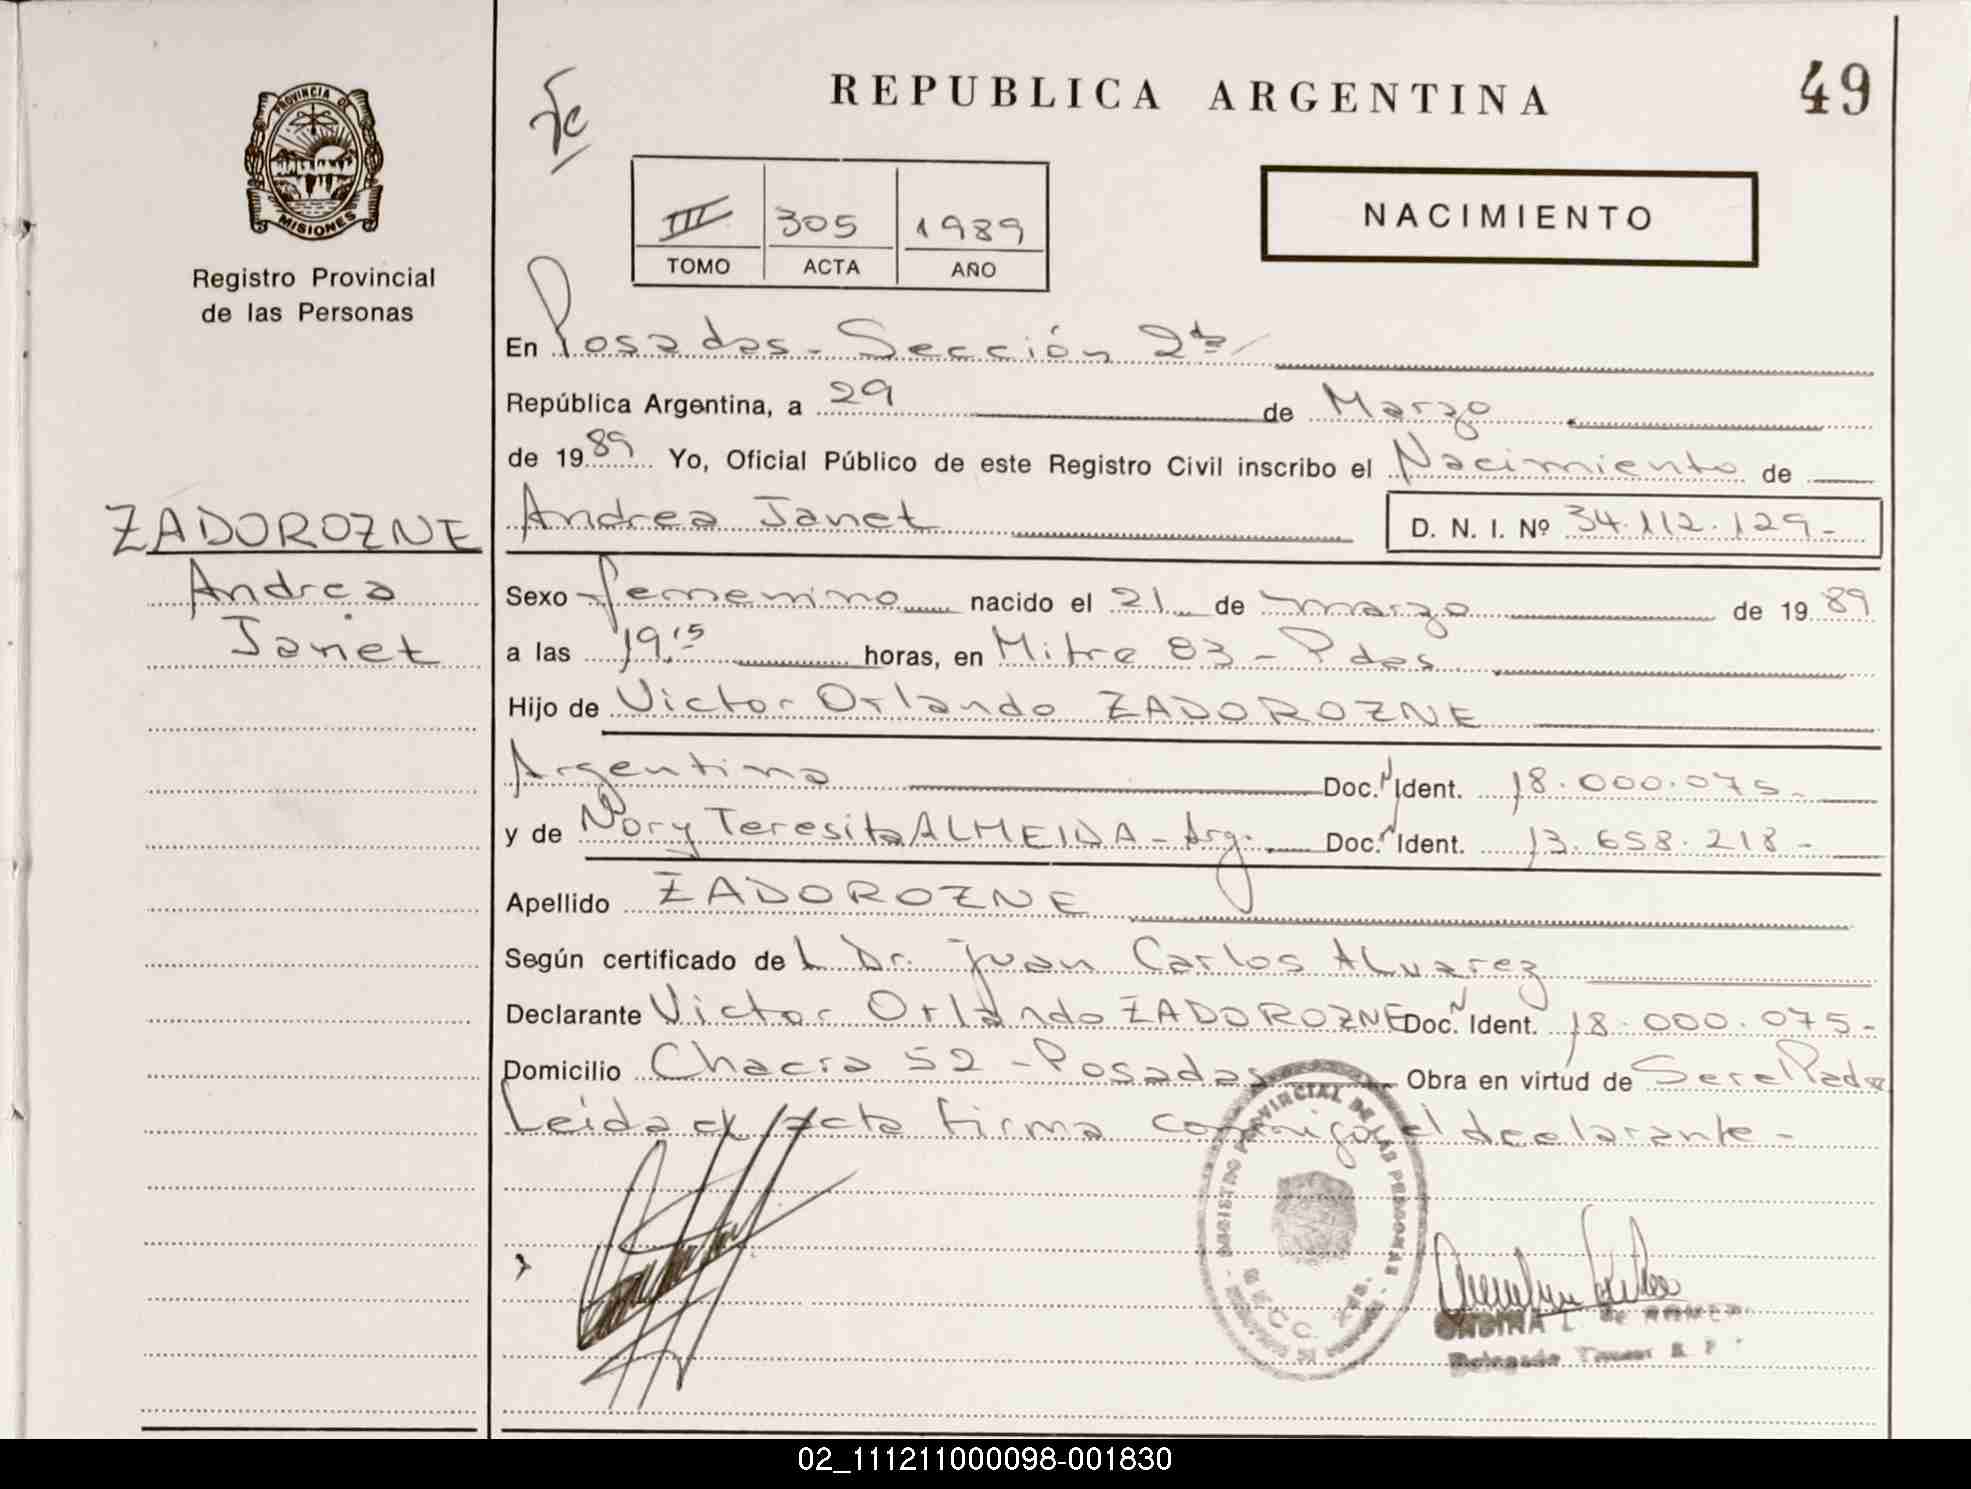 REPUBLICA ARGENTINA
49
PROVINCIA DE
MISIONES
Registro Provincial
de las Personas
III 305 1989
TOMO ACTA AÑO
NACIMIENTO
En Posadas - Sección 2da
República Argentina, a 29 de Marzo
de 1989 Yo, Oficial Público de este Registro Civil inscribo el Nacimiento de
ZADOROZNE
Andrea
Janet
Andrea Janet D. N. I. Nº 34.112.129-
Sexo femenino nacido el 21 de marzo de 1989
a las 19,15 horas, en Mitre 83 - Pdas
Hijo de Victor Orlando ZADOROZNE
Argentino Doc. N Ident. 18.000.075-
y de Nory Teresita ALMEIDA - Arg. Doc. N Ident. 13.658.218-
Apellido ZADOROZNE
Según certificado del Dr. Juan Carlos Alvarez
Declarante Victor Orlando ZADOROZNE Doc. N Ident. 18.000.075-
Domicilio Chacra 52 - Posadas Obra en virtud de Ser el Padre
Leida el Acta firma conmigo el declarante -
REGISTRO PROVINCIAL DE LAS PERSONAS
SECC.
ONDINA
Delegada
02_111211000098-001830